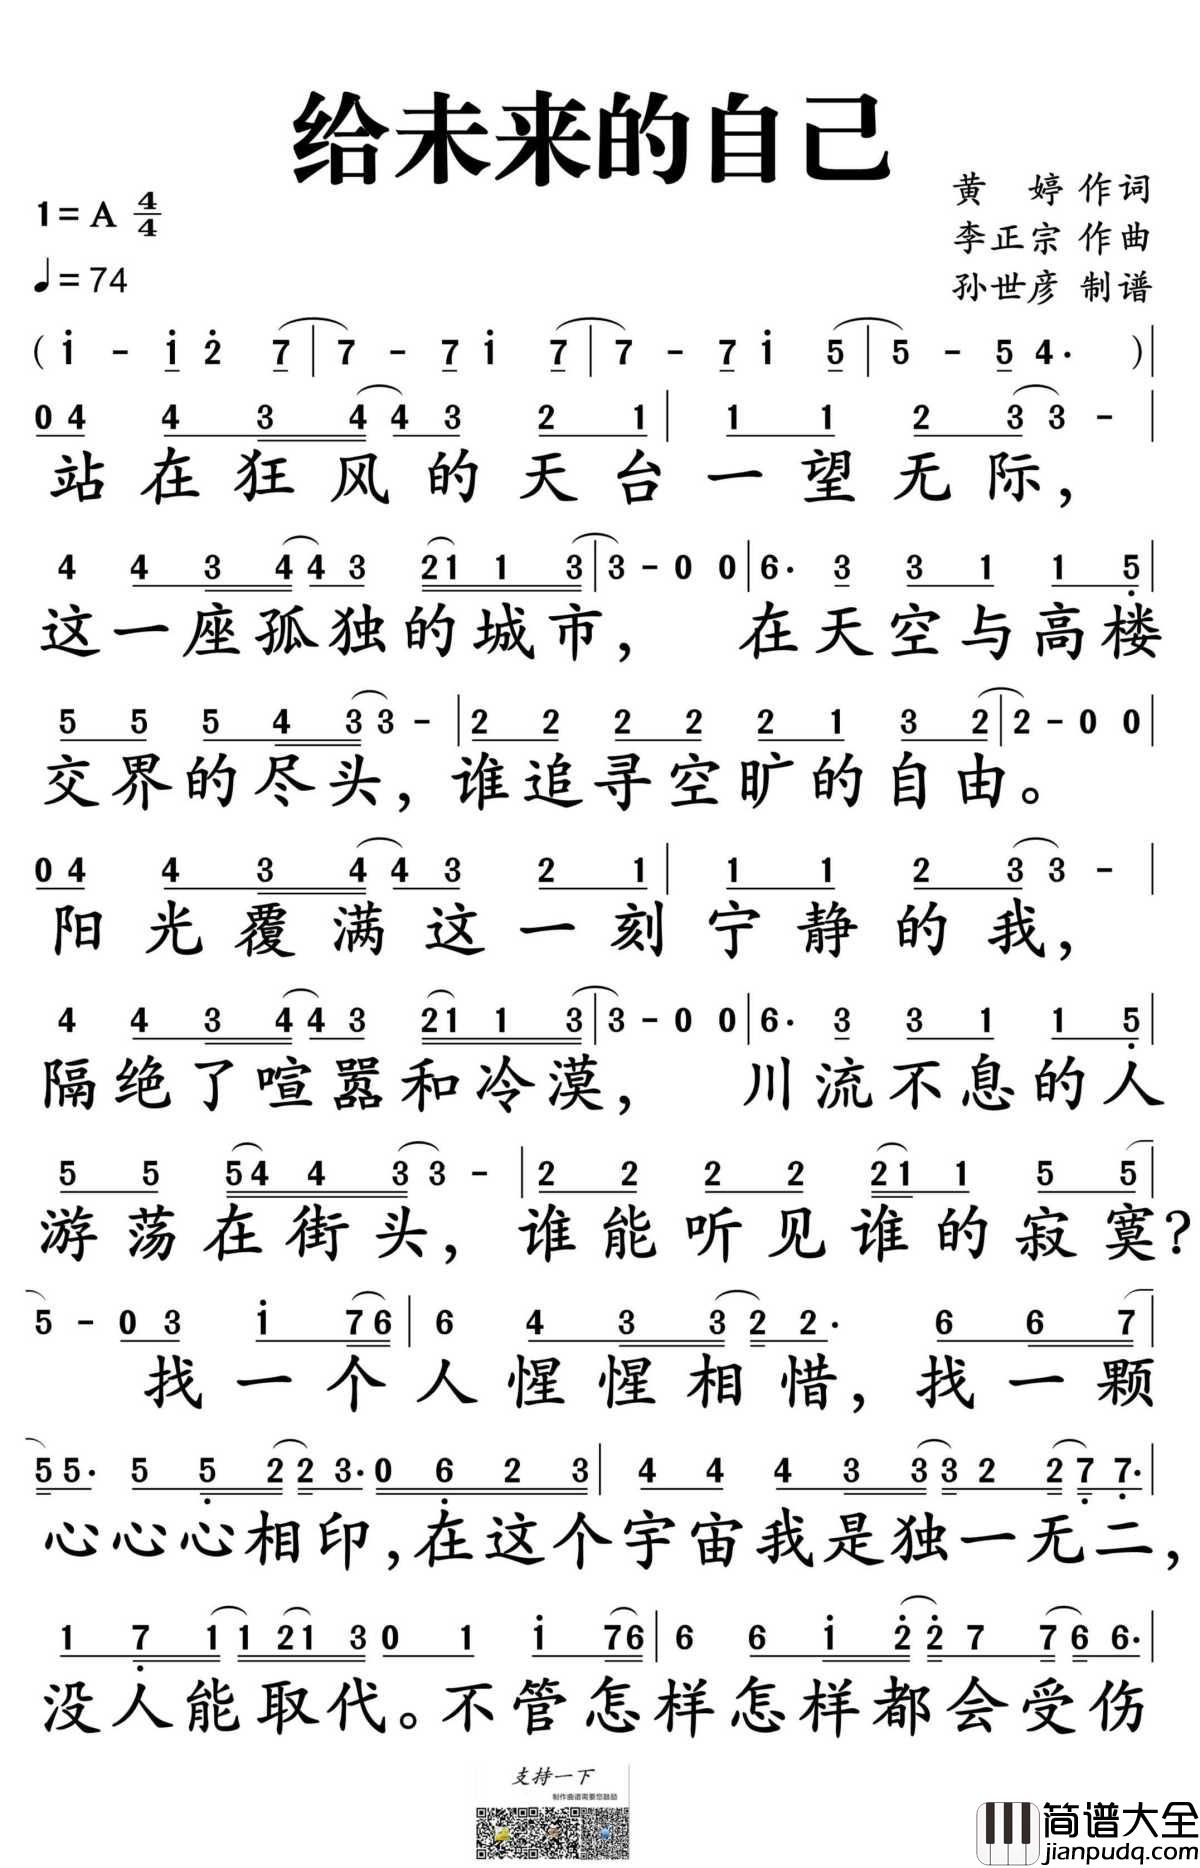 给未来的自己
黄 婷 作词
1=A 4/4
李正宗 作曲
♩=74
孙世彦 制谱
( i - i 2̇ 7 | 7 - 7 i 7 | 7 - 7 i 5 | 5 - 5 4· ) |
0 4 4 3 4 4 3 2 1 | 1 1 2 3 3 - |
站在狂风的天台一望无际，
4 4 3 4 4 3 2 1 1 3 | 3 - 0 0 | 6· 3 3 1 1 5̣ |
这一座孤独的城市， 在天空与高楼
5 5 5 4 3 3 - | 2 2 2 2 2 1 3 2 | 2 - 0 0 |
交界的尽头，谁追寻空旷的自由。
0 4 4 3 4 4 3 2 1 | 1 1 2 3 3 - |
阳光覆满这一刻宁静的我，
4 4 3 4 4 3 2 1 1 3 | 3 - 0 0 | 6· 3 3 1 1 5̣ |
隔绝了喧嚣和冷漠， 川流不息的人
5 5 5 4 4 3 3 - | 2 2 2 2 2 1 1 5 5 |
游荡在街头，谁能听见谁的寂寞？
5 - 0 3 i 7 6 | 6 4 3 3 2 2· 6 6 7 |
找一个人惺惺相惜，找一颗
5 5· 5 5̣ 2 2 3· 0 6̣ 2 3 | 4 4 4 3 3 3 2 2 7̣ 7̣· |
心心心相印，在这个宇宙我是独一无二，
1 7̣ 1 1 2 1 3 0 1 i 7 6 | 6 6 i 2̇ 2̇ 7 7 6 6· |
没人能取代。不管怎样怎样都会受伤
支持一下
制作曲谱需要您鼓励
简谱大全
jianpudq.com